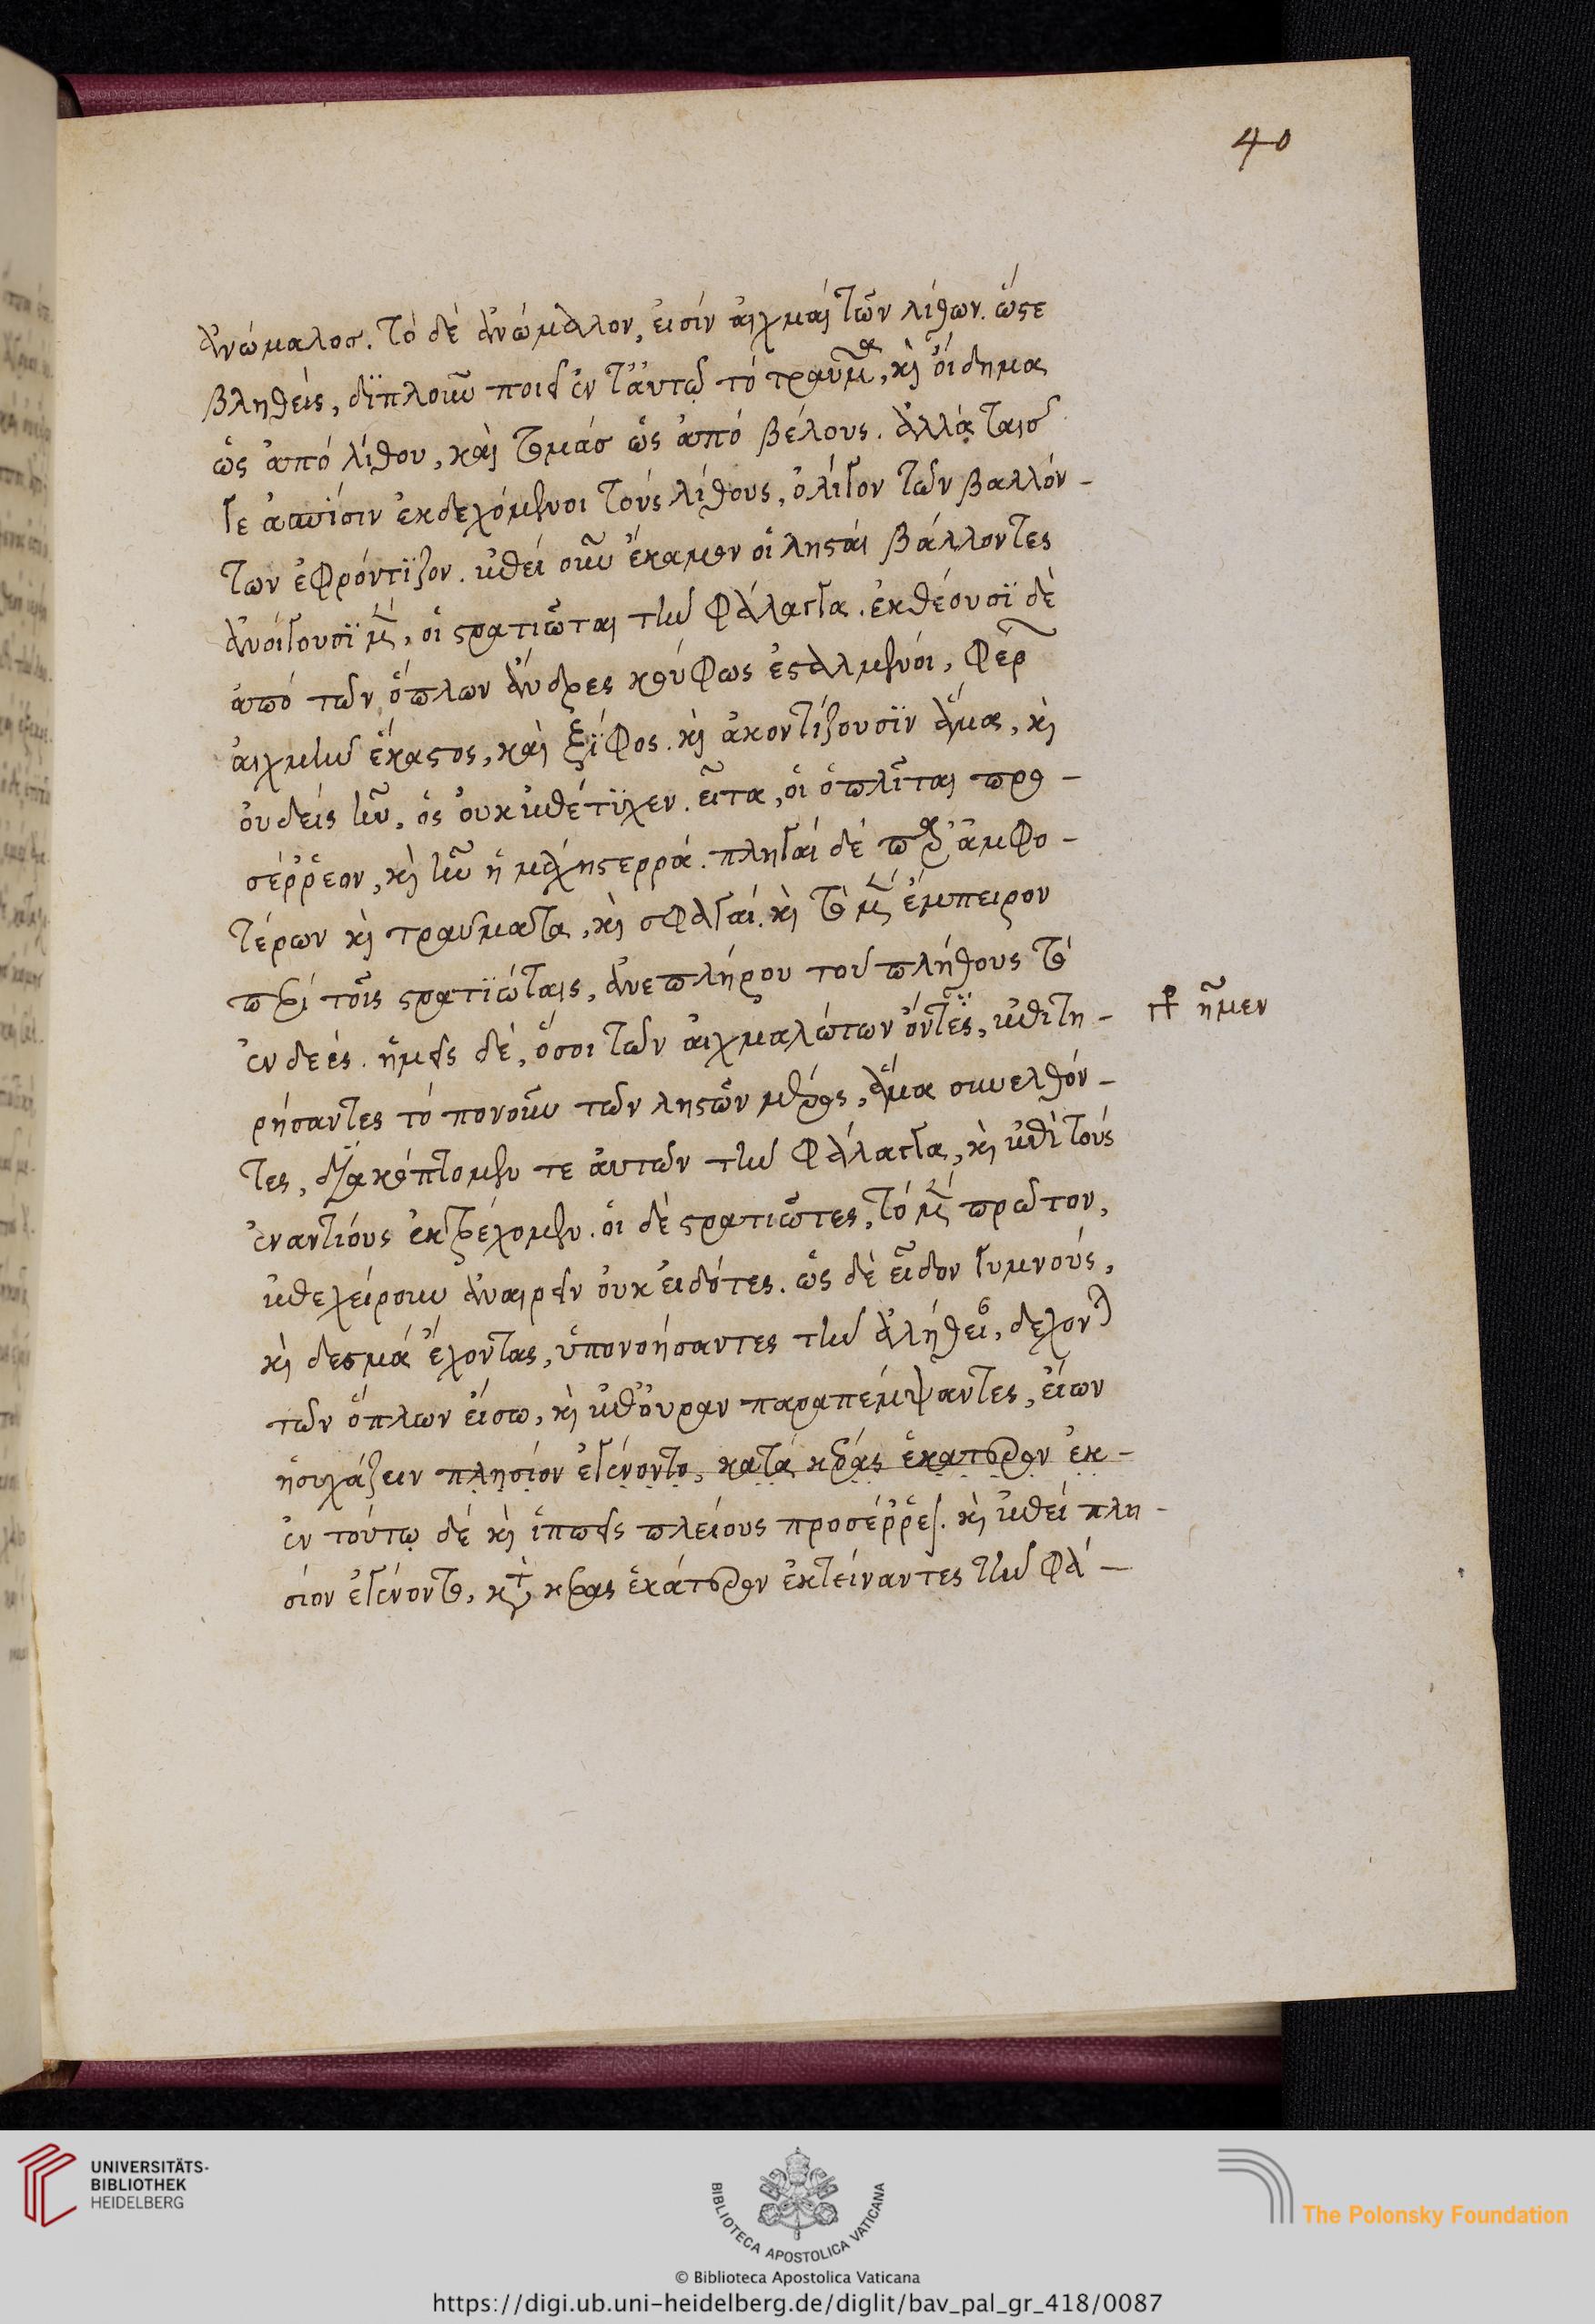 40
ἀνώμαλοσ. τὸ δὲ ἀνώμαλον, εἰσὶν αἰχμαὶ τῶν λίθων. ὥστε
βληθεὶς, διπλοῦν ποιεῖ ἐν ταὐτῷ τὸ τραῦμα, κὶ οἴδημα
ὡς ἀπὸ λίθου, καὶ τομὰσ ὡς ἀπὸ βέλους. ἀλλὰ ταῖσ
γε ἀσπίσιν ἐκδεχόμενοι τοὺς λίθους, ὀλίγον τῶν βαλλόν-
των ἐφρόντιζον. ἐπεὶ οὖν ἔκαμον οἱ λησταὶ βάλλοντες
ἀνοίγουσι μὲν, οἱ στρατιῶται τὴν φάλαγγα. ἐκθέουσι δὲ
ἀπὸ τῶν ὅπλων ἄνδρες κούφως ἐσταλμένοι, φέρ
αἰχμὴν ἕκαστος, καὶ ξίφος. κὶ ἀκοντίζουσιν ἅμα, κὶ
οὐδεὶς ἦν, ὃς οὐκ ἐπέτυχεν. εἶτα, οἱ ὁπλῖται προ-
σέρρεον, κὶ ἦν ἡ μάχη στερρά. πληγαὶ δὲ παρ' ἀμφο-
τέρων κὶ τραύματα, κὶ σφαγαί. κὶ τὸ μὲν ἔμπειρον
παρὰ τοῖς στρατιώταις, ἀνεπλήρου τοῦ πλήθους τὸ
ἐνδεές. ἡμεῖς δὲ, ὅσοι τῶν αἰχμαλώτων ὄντες, ἐπιτη- ἦμεν
ρήσαντες τὸ πονοῦν τῶν ληστῶν μέρος, ἅμα συνελθόν-
τες, διακόπτομέν τε αὐτῶν τὴν φάλαγγα, κὶ ἐπὶ τοὺς
ἐναντίους ἐκτρέχομεν. οἱ δὲ στρατιῶτες, τὸ μὲν πρῶτον,
ἐπεχείρουν ἀναιρεῖν οὐκ εἰδότες. ὡς δὲ εἶδον γυμνοὺς,
κὶ δεσμὰ ἔχοντας, ὑπονοήσαντες τὴν ἀλήθειαν, δέχονται
τῶν ὅπλων εἴσω, κὶ ἐπ' οὐραν παραπέμψαντες, εἴων
ἡσυχάζειν πλησίον ἐγένοντο, κατὰ κέρας ἑκάτερον ἐκ-
ἐν τούτῳ δὲ κὶ ἱππεῖς πλείους προσέρρει. κὶ ἐπεὶ πλη-
σίον ἐγένοντο, κατὰ κέρας ἑκάτερον ἐκτείναντες τὴν φά-
UNIVERSITÄTS-
BIBLIOTHEK
HEIDELBERG
BIBLIOTECA APOSTOLICA VATICANA
© Biblioteca Apostolica Vaticana
The Polonsky Foundation
https://digi.ub.uni-heidelberg.de/diglit/bav_pal_gr_418/0087